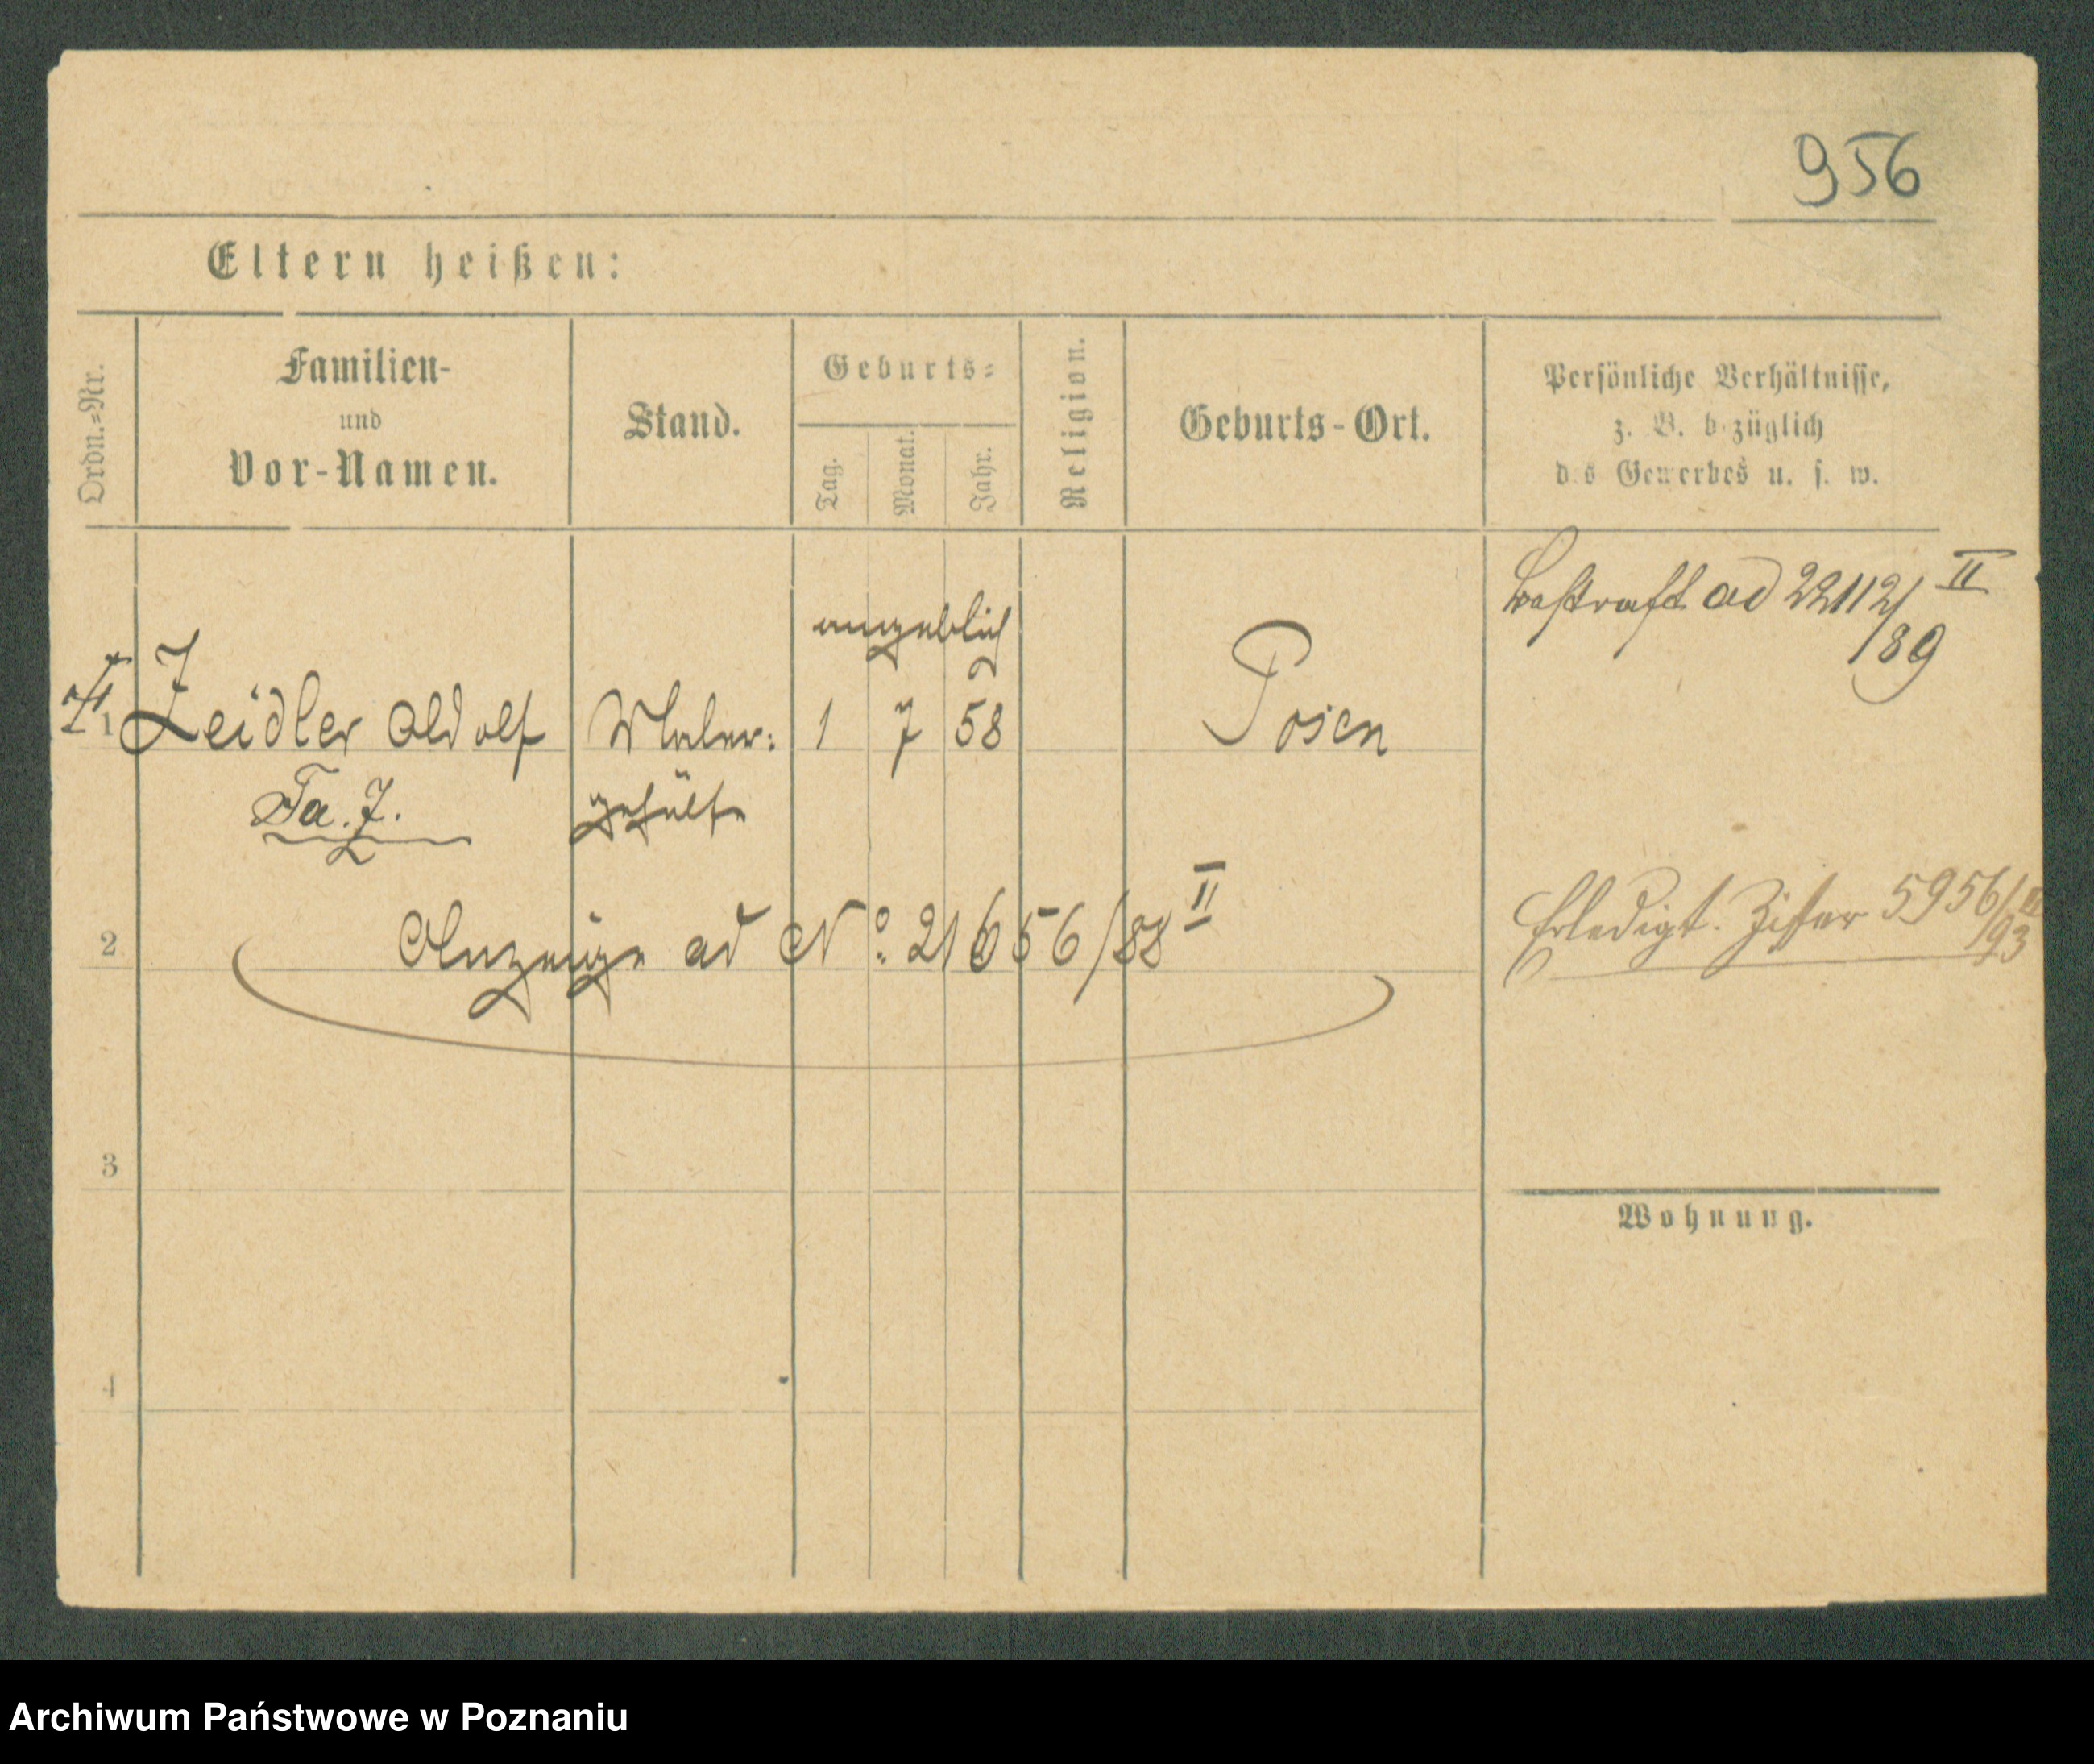 956
Eltern heißen:
Ordn.=Nr.
Familien-
und
Vor-Namen.
Stand.
Geburts=
Tag.
Monat.
Jahr.
Religion.
Geburts-Ort.
Persönliche Verhältnisse,
z. B. bezüglich
des Gewerbes u. s. w.
Bestraft ad 22112/ II
/89
angeblich
1 Zeidler Adolf Maler: 1 7 58 Posen
Fa. Z. gehülfe
2 Anzeige ad No: 21656/88 II
Erledigt. Ziffer 5956/II
/93
3
Wohnung.
4
Archiwum Państwowe w Poznaniu